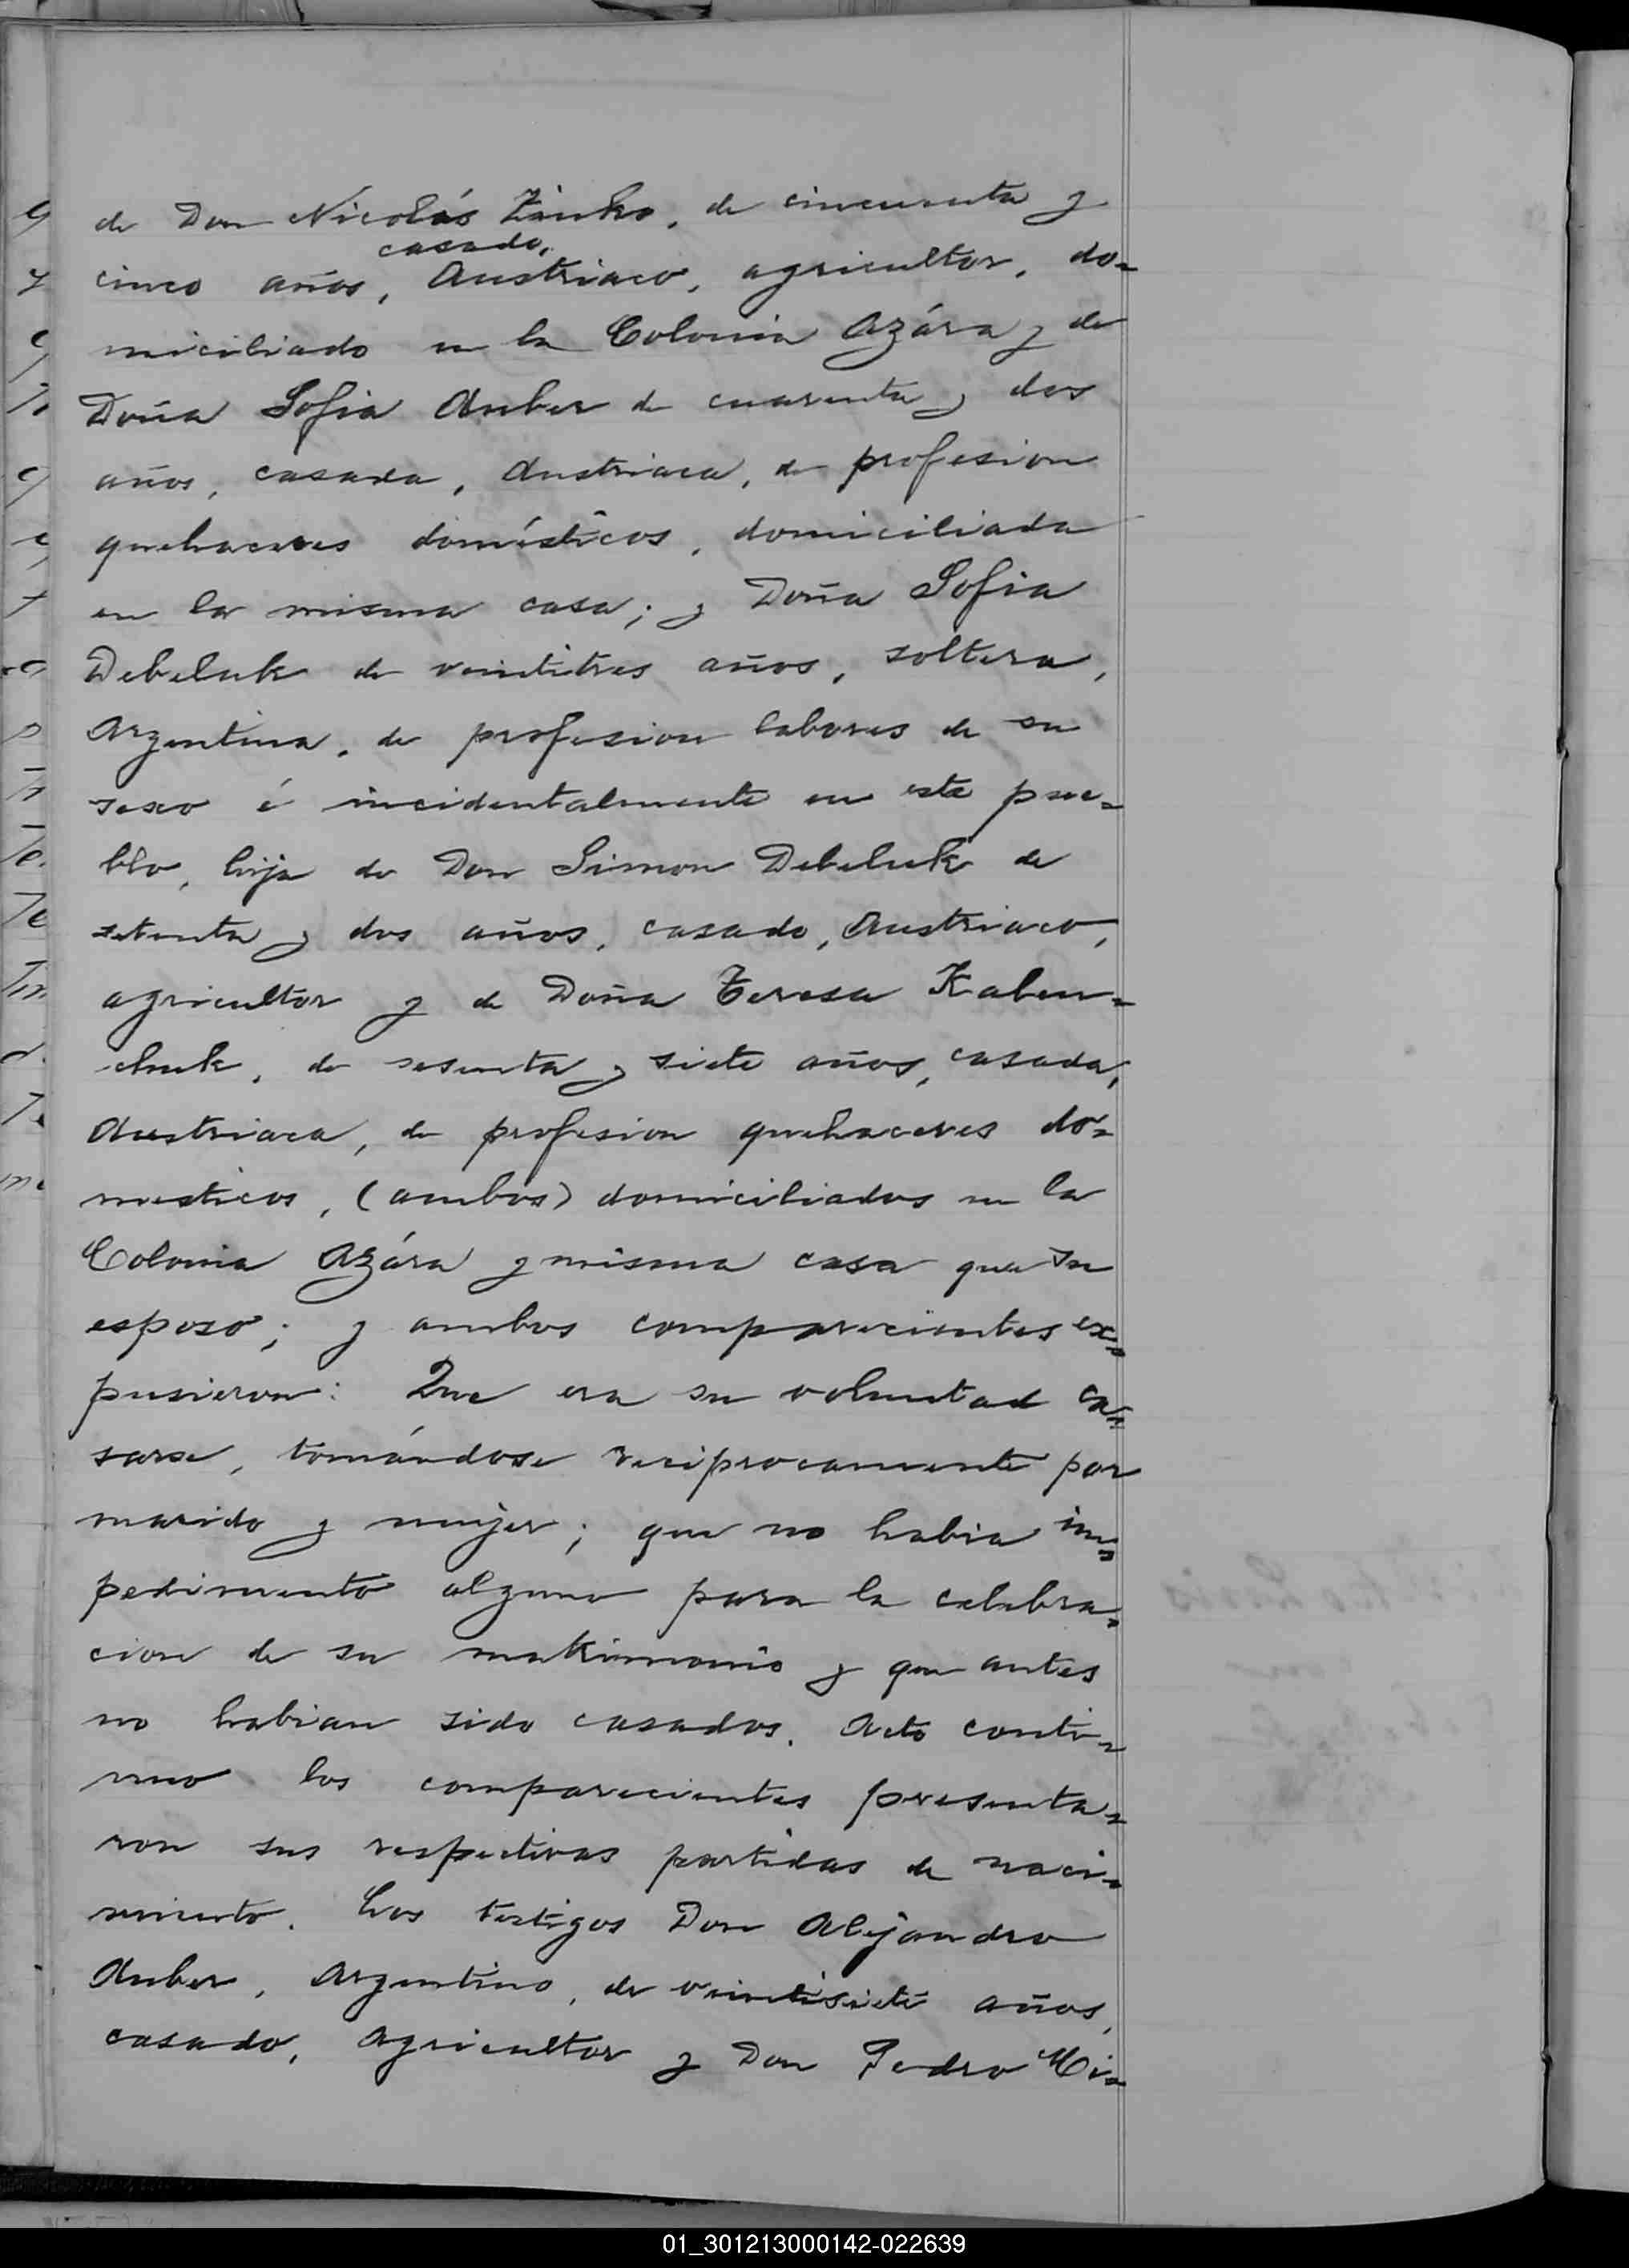 de Don Nicolás Zinko, de cincuenta y
casado,
cinco años, Austriaco, agricultor, do=
miciliado en la Colonia Azára y de
Doña Sofia Anber de cuarenta y dos
años, casada, Austriaca, de profesion
quehaceres domésticos, domiciliada
en la misma casa; y Doña Sofia
Debeluk de veintitres años, soltera,
Argentina, de profesion labores de su
sexo é incidentalmente en este pue=
blo, hija de Don Simon Debeluk de
setenta y dos años, casado, Austriaco,
agricultor y de Doña Teresa Kaben=
chuk, de sesenta y siete años, casada,
Austriaca, de profesion quehaceres do=
mesticos, (ambos) domiciliados en la
Colonia Azára y misma casa que su
esposo; y ambos comparecientes ex=
pusieron: Que era su voluntad ca=
sarse, tomándose reciprocamente por
marido y mujer; que no habia im=
pedimento alguno para la celebra=
cion de su matrimonio y que antes
no habian sido casados. Acto conti=
nuo los comparecientes presenta=
ron sus respectivas partidas de naci=
miento. Los testigos Don Alejandro
Anber, Argentino, de veintisiete años,
casado, agricultor y Don Pedro Mi=
01_301213000142-022639